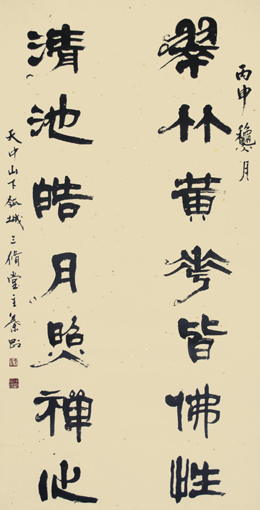 丙申 月
翠竹黄花皆佛性
清池皓月照禅心
天中山下 城三 堂主